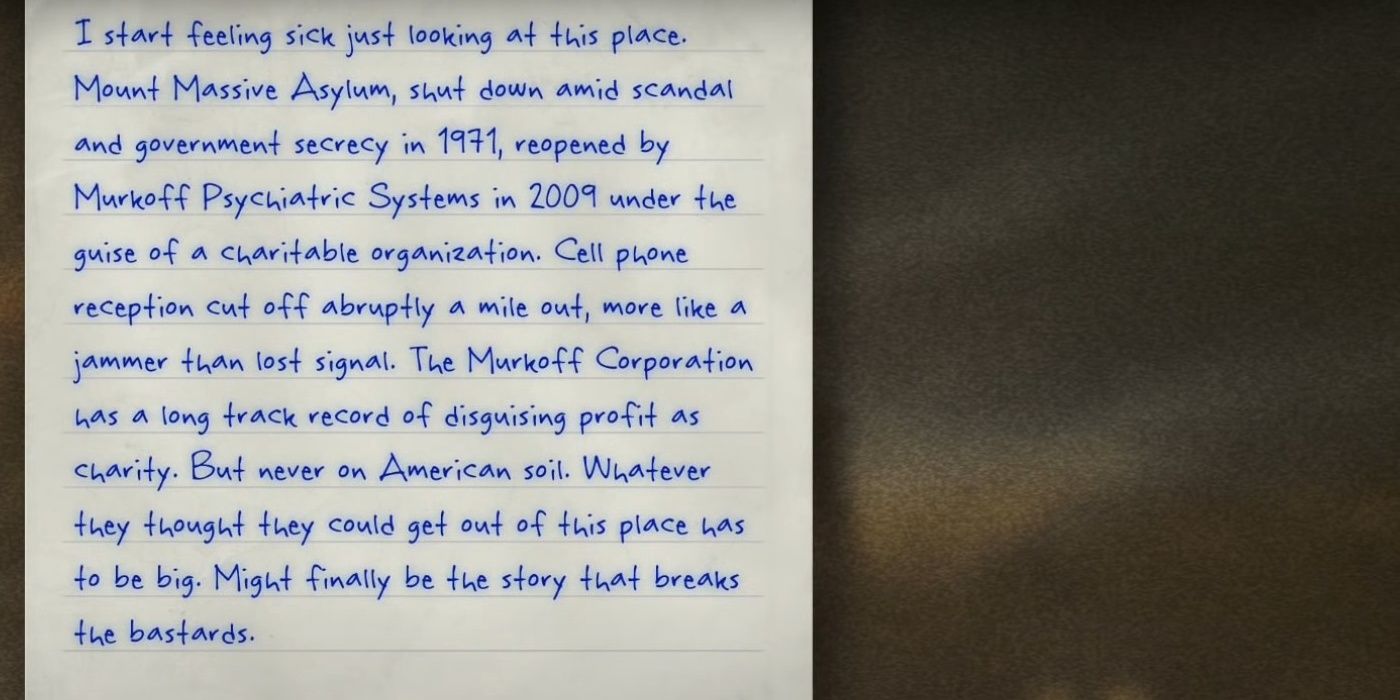 I start feeling sick just looking at this place.
Mount Massive Asylum, shut down amid scandal
and government secrecy in 1971, reopened by
Murkoff Psychiatric Systems in 2009 under the
guise of a charitable organization. Cell phone
reception cut off abruptly a mile out, more like a
jammer than lost signal. The Murkoff Corporation
has a long track record of disguising profit as
charity. But never on American soil. Whatever
they thought they could get out of this place has
to be big. Might finally be the story that breaks
the bastards.